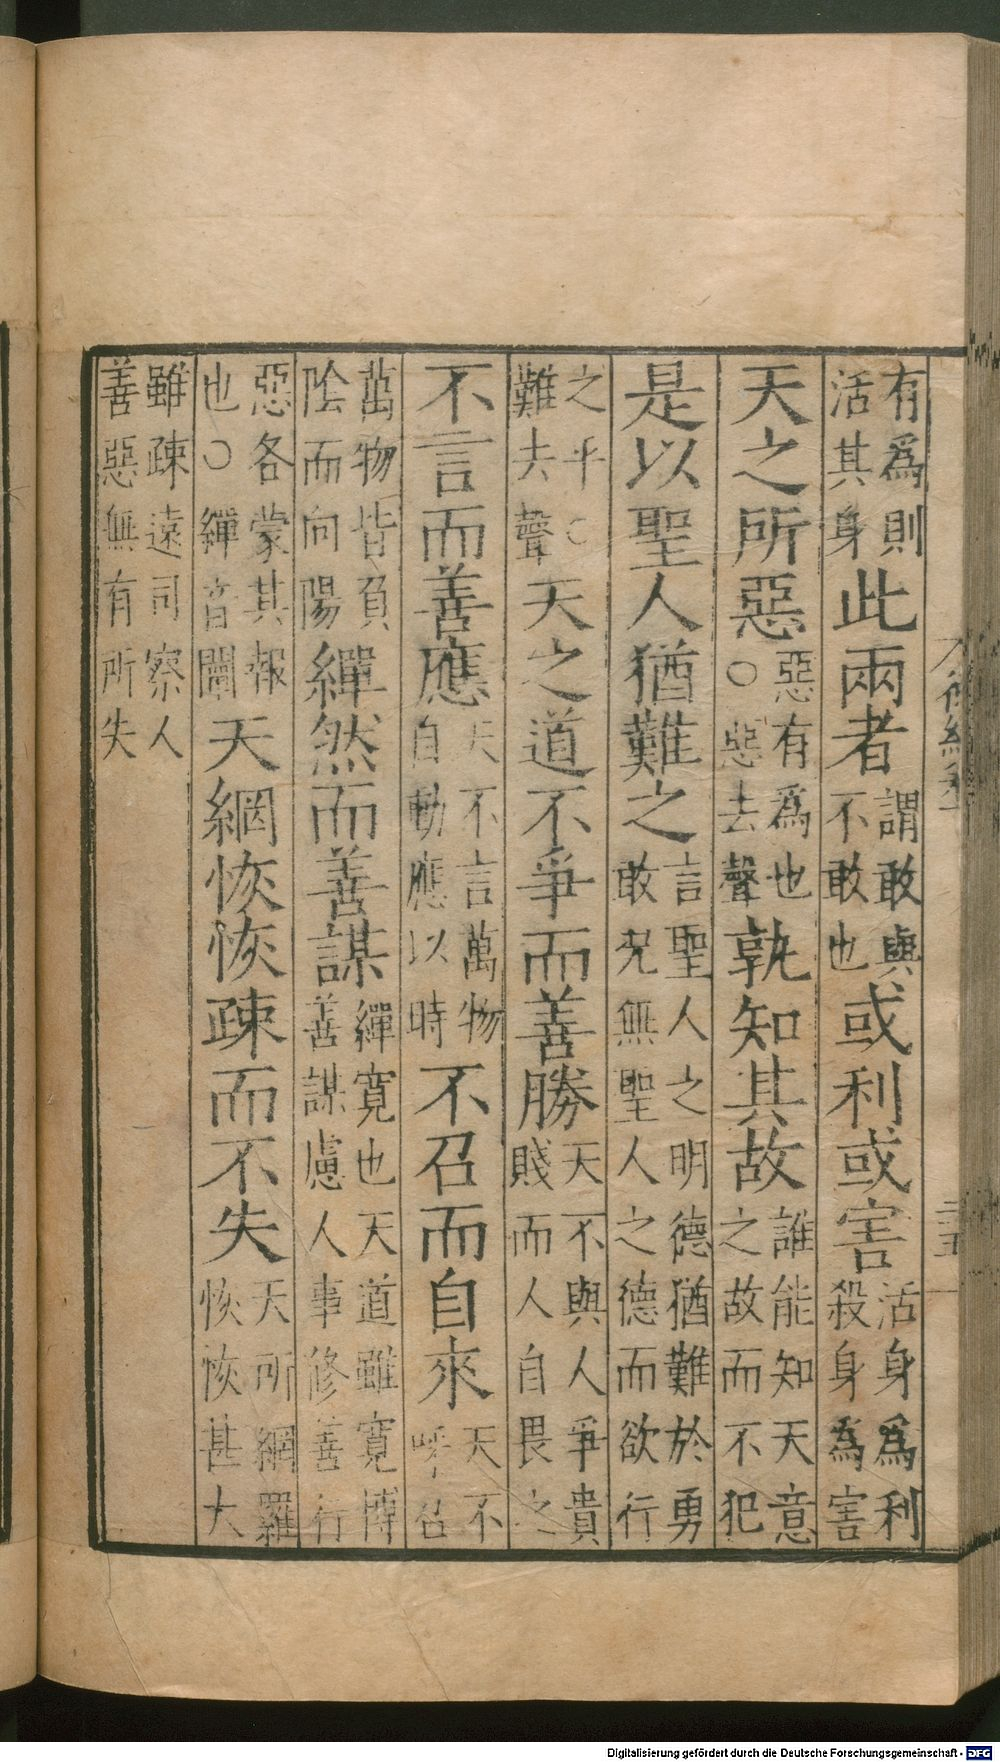 有爲則活其身此兩者謂敢與不敢也或利或害活身爲利殺身為害
天之所惡惡有爲也○惡去聲孰知其故誰能知天意之故而不犯
是以聖人猶難之言聖人之明德猶難於勇敢況無聖人之德而欲行
之乎○難去聲天之道不爭而善勝天不與人爭貴賤而人自畏之
不言而善應天不言萬物自動應以時不召而自來天不呼召
萬物皆負陰而向陽繟然而善謀繟寬也天道雖寬博善謀慮人事修善行
惡各蒙其報也○繟音闡天網恢恢疎而不失天所網羅恢恢甚大
雖疎遠司察人善惡無有所失
Digitalisierung gefördert durch die Deutsche Forschungsgemeinschaft - DFG